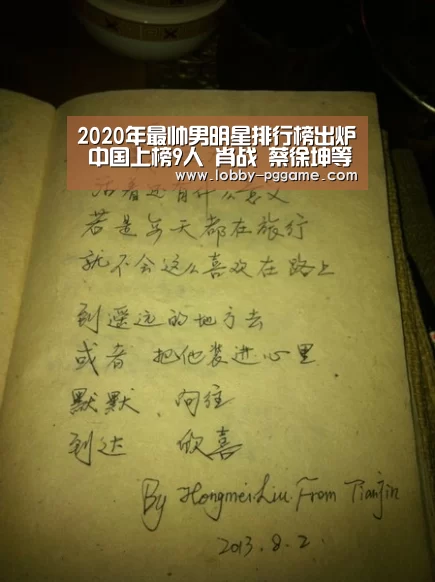 2020年最帅男明星排行榜出炉
中国上榜9人 肖战 蔡徐坤等
www.lobby-pggame.com
活着还有什么意义
若是每天都在旅行
就不会这么喜欢在路上
到遥远的地方去
或者 把他装进心里
默默、向往
到达 欣喜
By Hongmei·Liu. From Tianjin
2013.8.2.